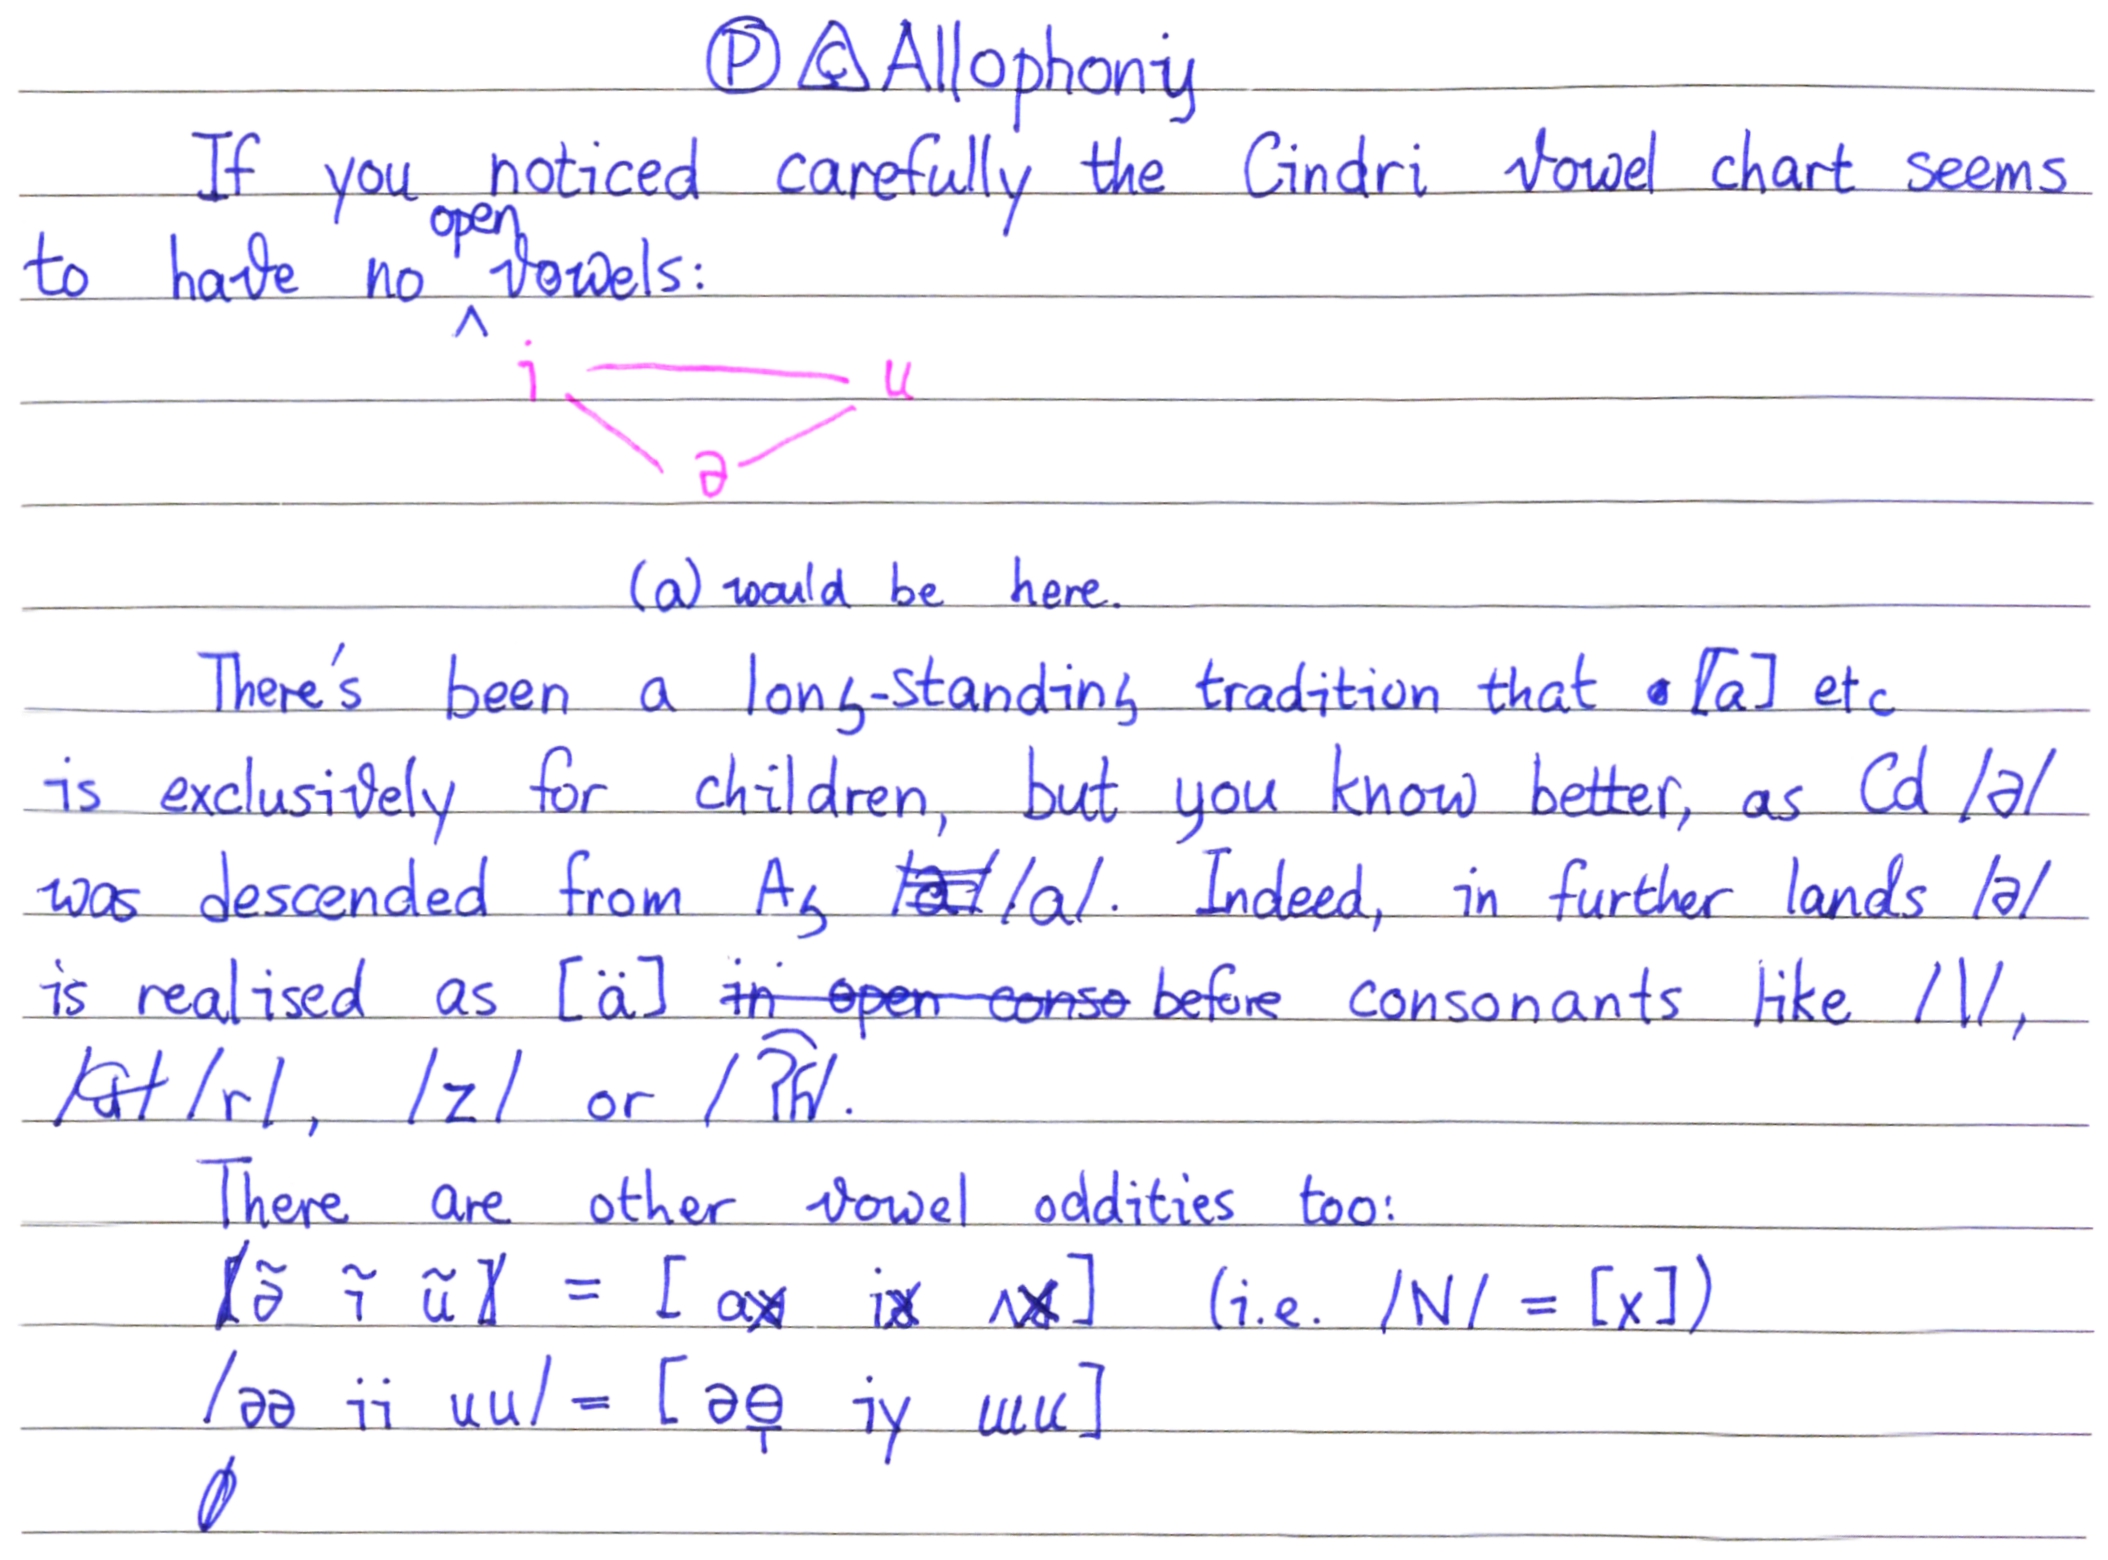 Ⓟ Ç Allophony
If you noticed carefully the Cindri vowel chart seems
to have no open vowels:
i u
ə
(a) would be here.
There's been a long-standing tradition that [a] etc
is exclusively for children, but you know better, as Cd /ə/
was descended from Ag /a/. Indeed, in further lands /ə/
is realised as [ä] in open conso before consonants like /l/,
/r/, /z/ or /ʔ͡ɦ/.
There are other vowel oddities too:
/ə̃ ĩ ũ/ = [ax ix ʌx] (i.e. /N/ = [x])
/əə ii uu/ = [əɵ̞ iy ɯu]